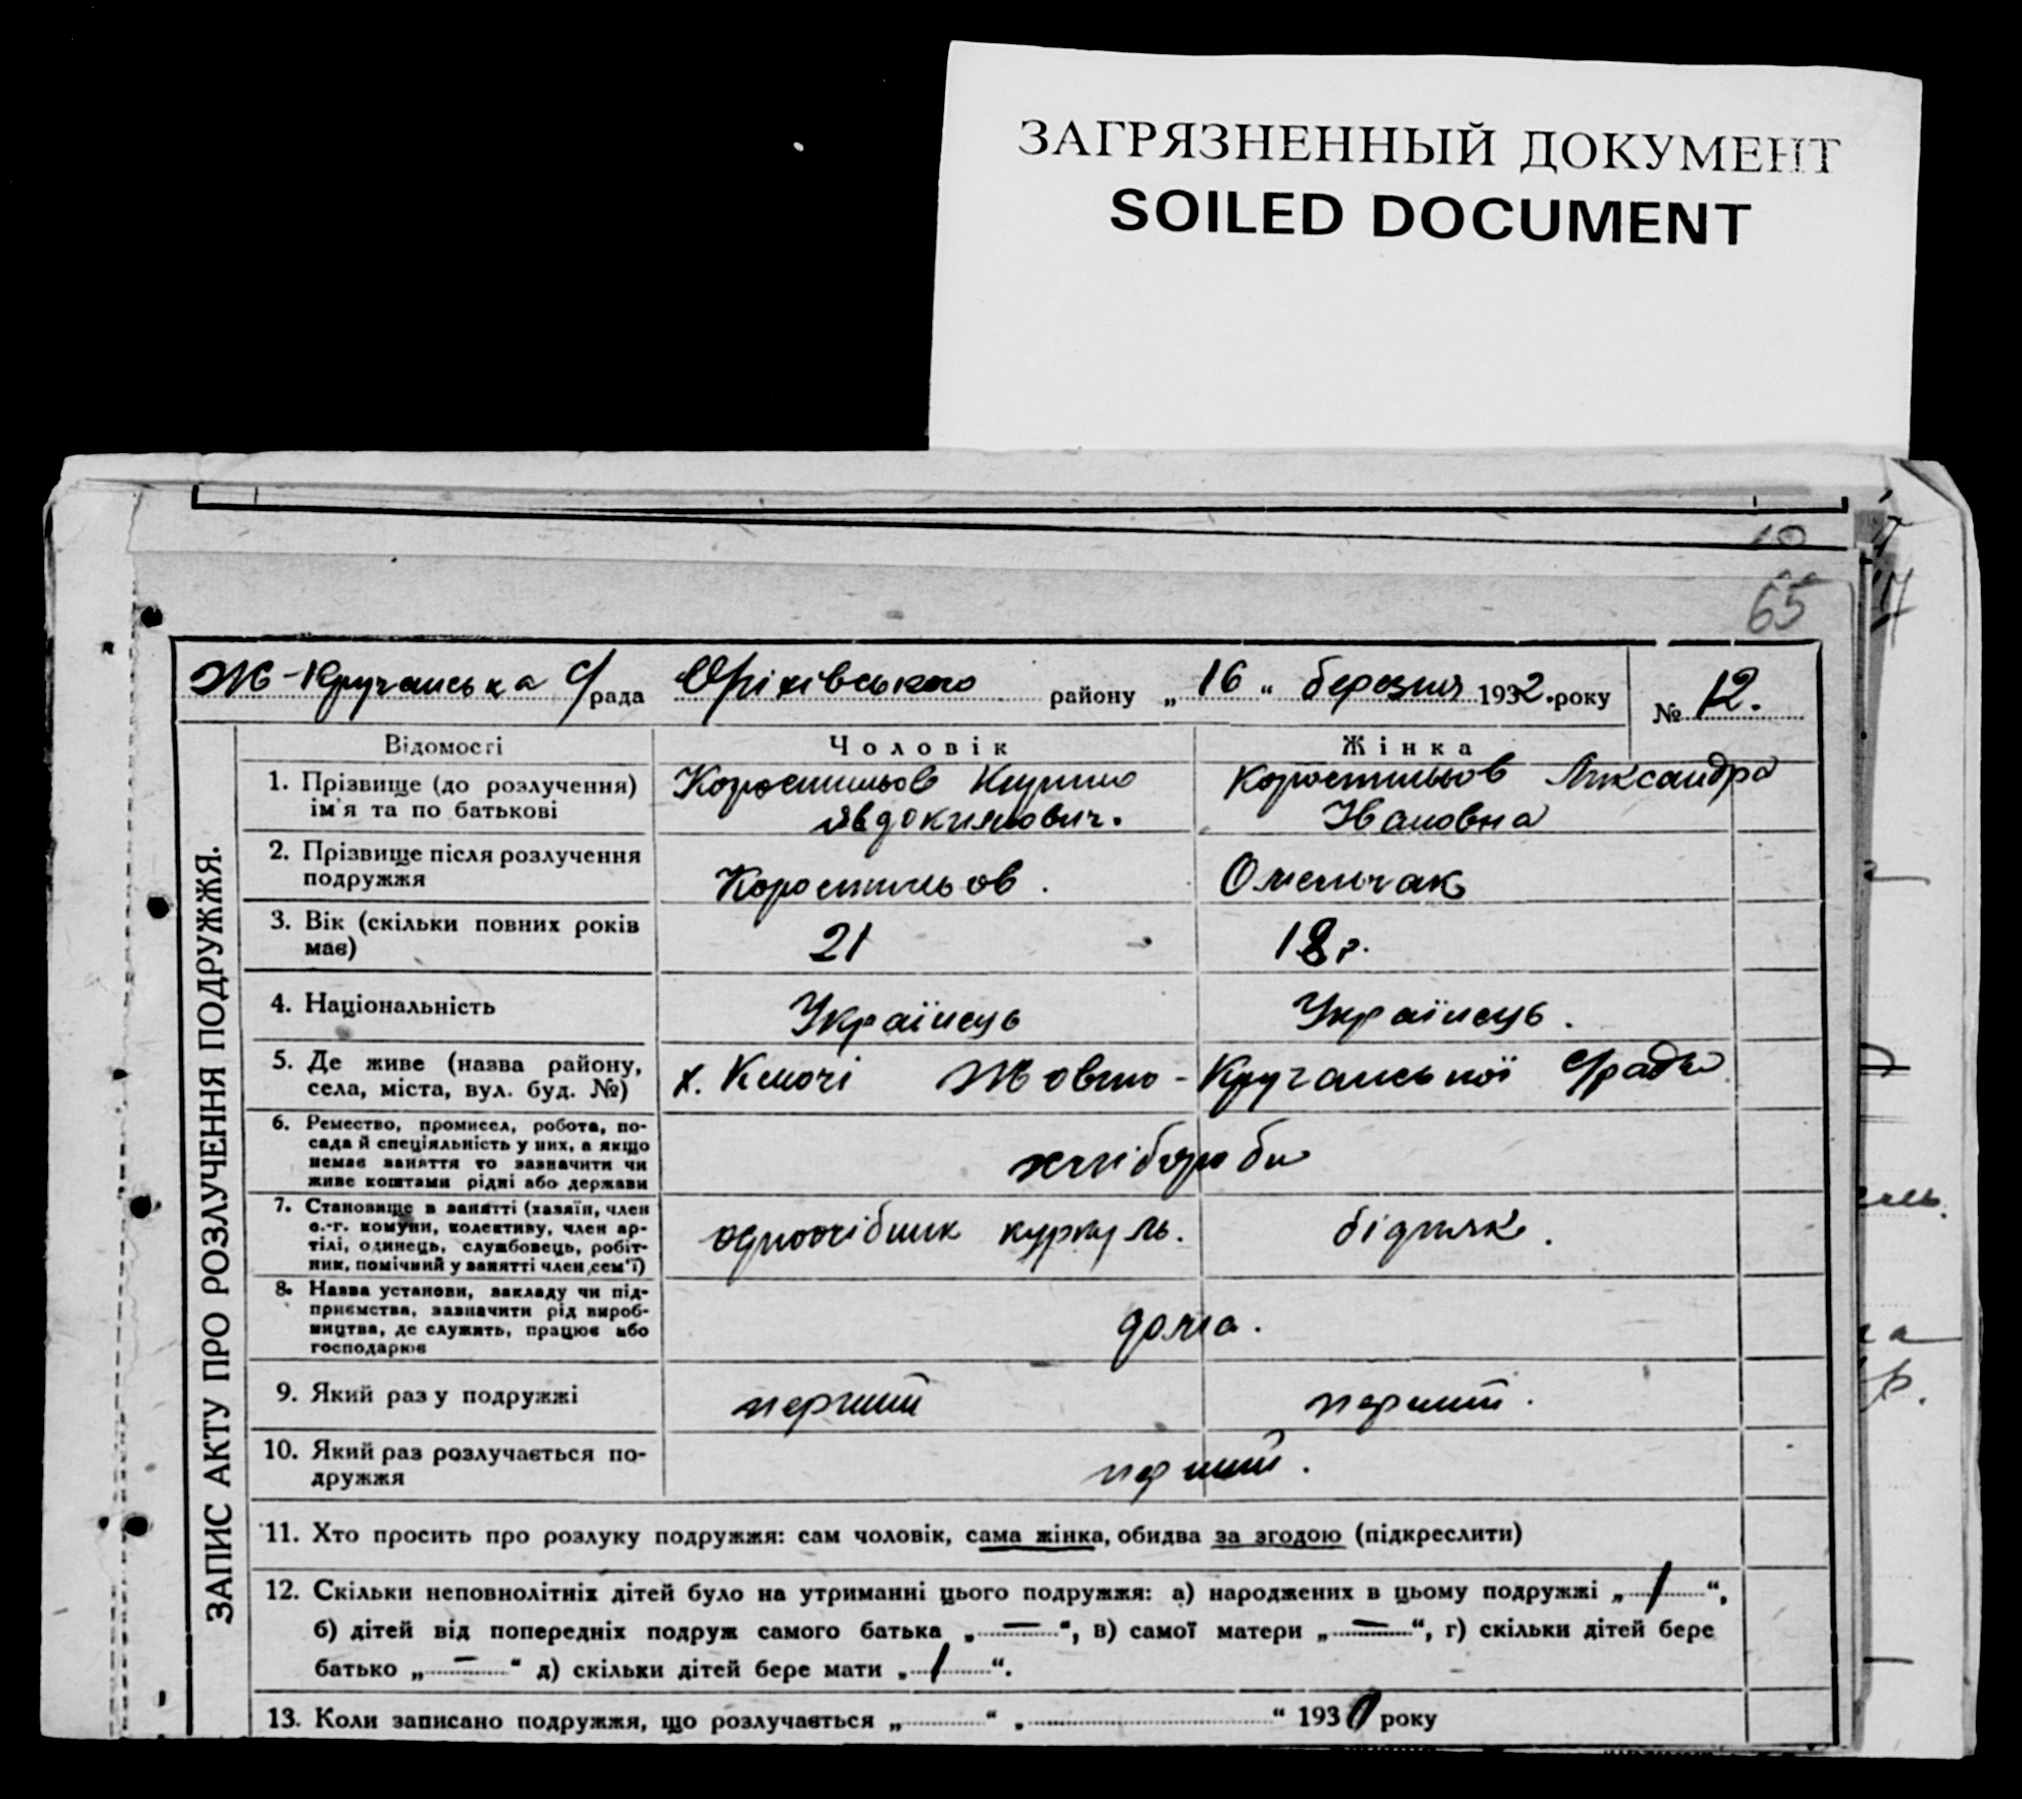 ЗАГРЯЗНЕННЫЙ ДОКУМЕНТ
SOILED DOCUMENT
65
Ж-Кручанська С/рада Оріхівського району „16“ березня 1932. року № 12.
ЗАПИС АКТУ ПРО РОЗЛУЧЕННЯ ПОДРУЖЖЯ.
Відомості Чоловік Жінка
1. Прізвище (до розлучення) Коростильов Коростильов Александра
ім'я та по батькові Явдокимович. Івановна
2. Прізвище після розлучення
подружжя Коростильов. Омельчак
3. Вік (скільки повних років
має) 21 18 р.
4. Національність Українець Українець.
5. Де живе (назва району,
села, міста, вул. буд. №) х. Ключі Жовтно-Кручанської С/ради
6. Ремество, промисел, робота, по-
сада й спеціяльність у них, а якщо
немає заняття то зазначити чи
живе коштами рідні або держави
хлібороби
7. Становище в занятті (хазяїн, член
с.-г. комуни, колективу, член ар-
тілі, одинець, службовець, робіт-
ник, помічний у занятті член сем'ї)
одноосібник куркуль. бідняк.
8. Назва установи, закладу чи під-
приємства, зазначити рід вироб-
ництва, де служить, працює або
господарює
дома.
9. Який раз у подружжі перший перший.
10. Який раз розлучається по-
дружжя перший.
11. Хто просить про розлуку подружжя: сам чоловік, сама жінка, обидва за згодою (підкреслити)
12. Скільки неповнолітніх дітей було на утриманні цього подружжя: а) народжених в цьому подружжі „1“,
б) дітей від попередніх подруж самого батька „—“, в) самої матери „—“, г) скільки дітей бере
батько „—“ д) скільки дітей бере мати „1“.
13. Коли записано подружжя, що розлучається „ “ „ “ 1930 року